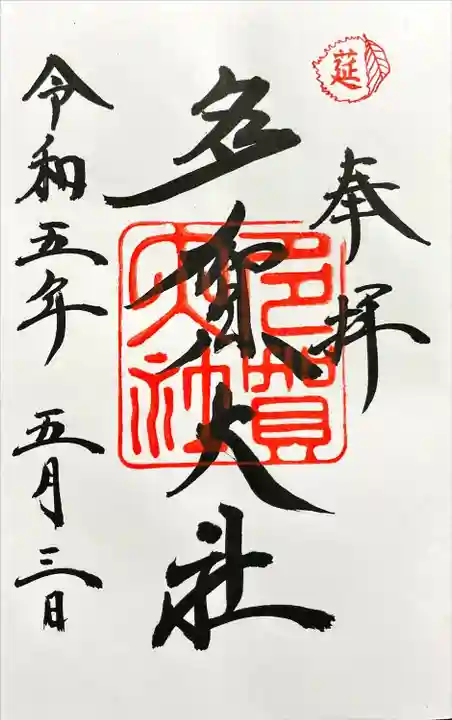 莚
奉拝
多賀大社
多賀大社
令和五年 五月三日